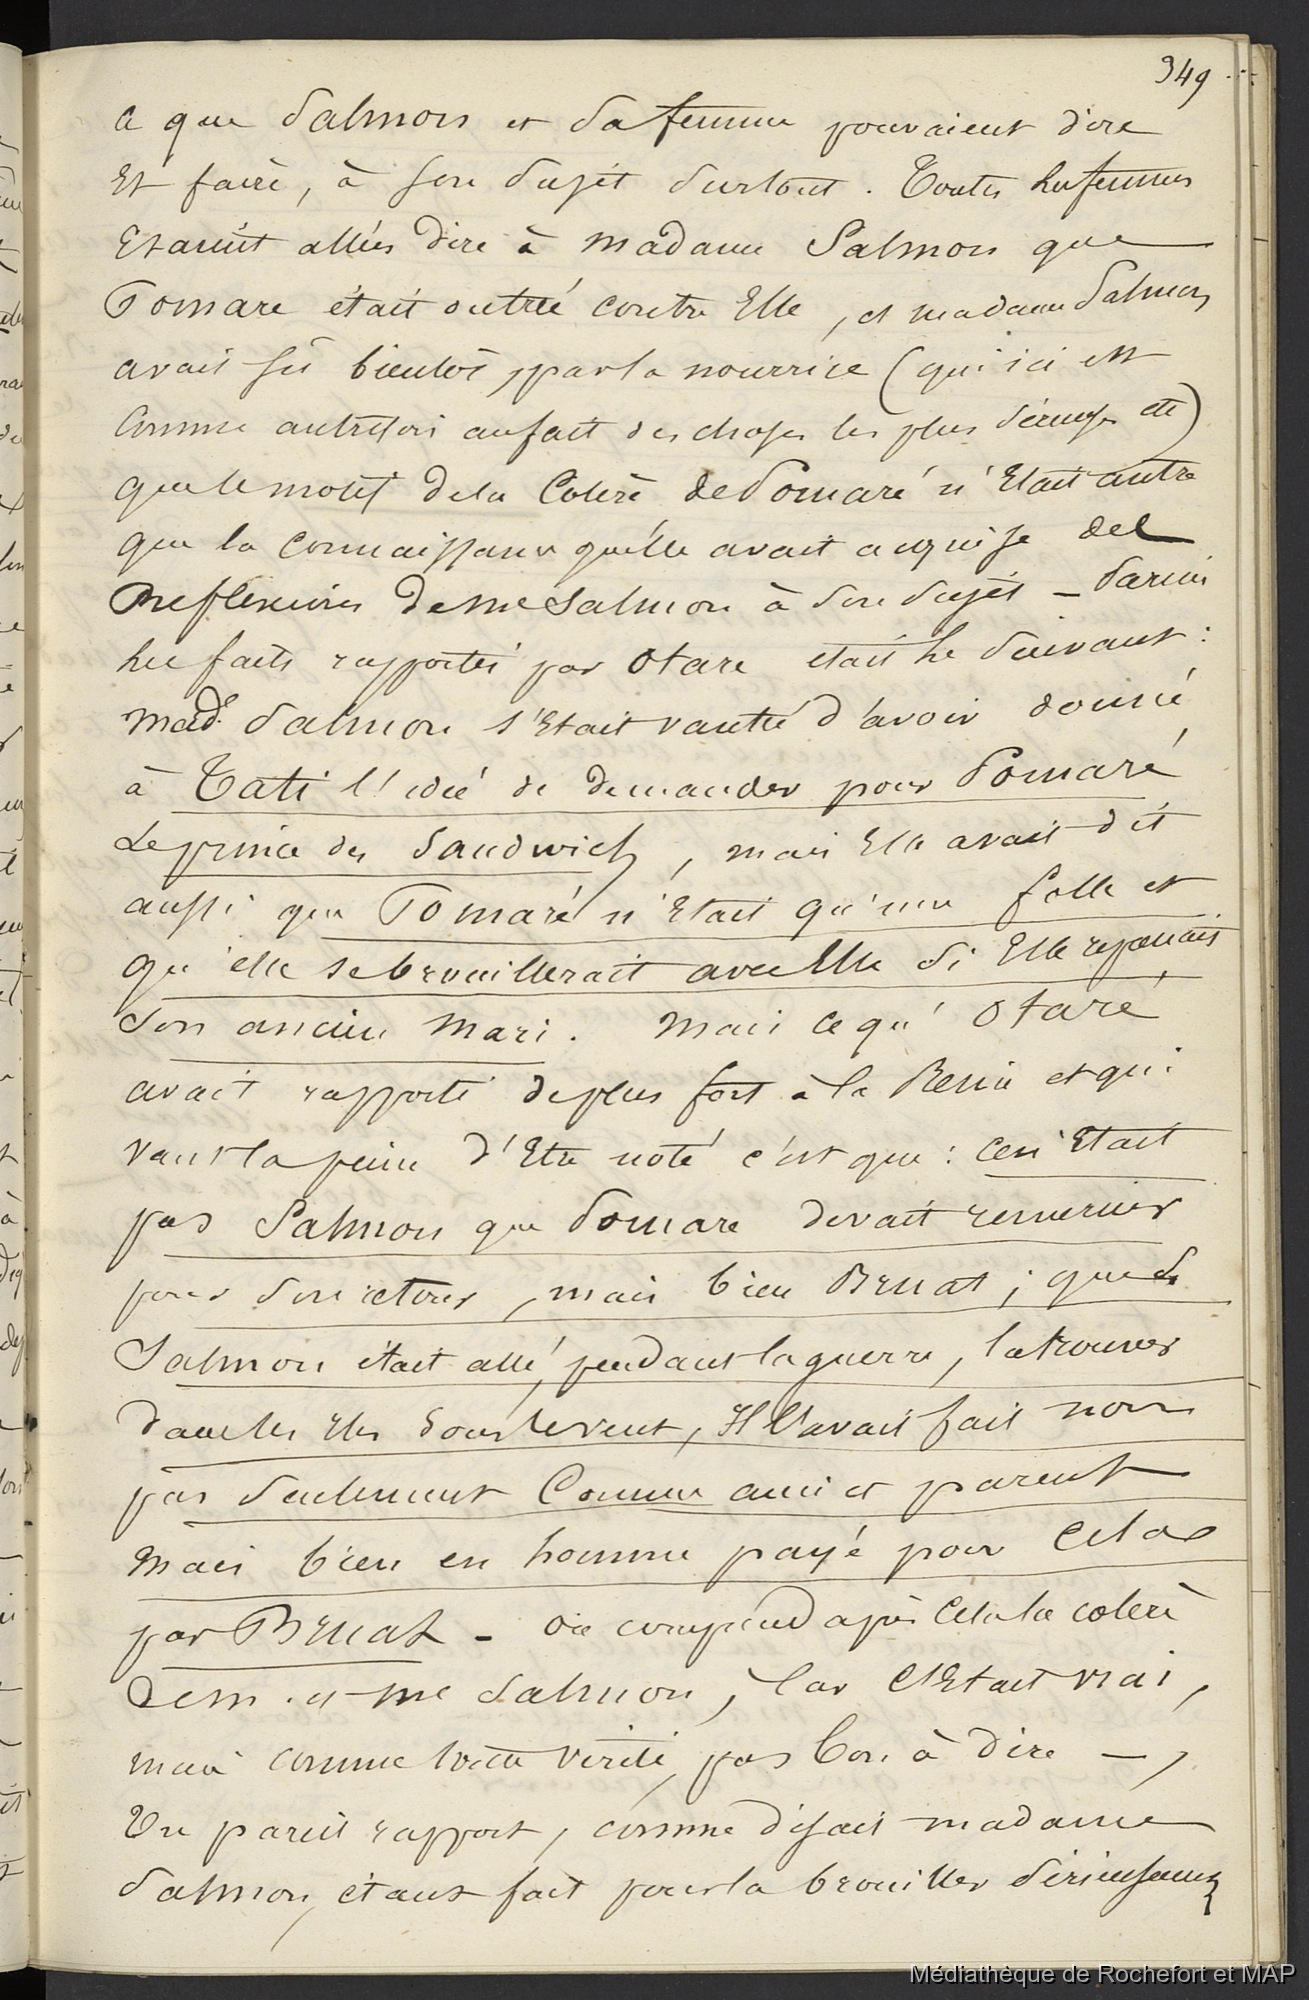 349
a que Salmon et sa femme pouvaient dire
Et faire, à son sujet surtout. Toutes les femmes
Etaient allées dire à madame Salmon que
Pomare était outrée contre Elle, et madame Salmon
avait sû bientôt, par la nourrice (qui ici est
Comme autrefois au fait des choses les plus sérieuses etc)
que le motif de la Colère de Pomaré n'Etait autre
que la connaissance qu'elle avait acquise des
Reflexions de Me Salmon à son sujet _ Parmi
les faits rapportés par Otare etait le Suivant :
Made Salmon s'Etait vantée d'avoir donné
à Tati l'idée de demander pour Pomaré
Le prince des Sandwich, mais Elle avait dit
aussi que Pomaré n'Etait qu'une folle et
qu'elle se brouillerait avec Elle si Elle reprenait
Son ancien Mari. Mais ce qu'Otaré
avait rapporté de plus fort à la Reine et qui
vaut la peine d'Etre noté c'est que : Ce n'Etait
pas Salmon que Pomare devait remercier
pour son retour, mais bien Bruat ; que si
Salmon était allé, pendant la guerre, la trouver
dans les Iles Sous le vent, Il l'avait fait non
pas seulement Comme ami et parent
Mais bien en homme payé pour Cela
par Bruat - On comprend après Cela la colère
de m. et me Salmon, Car C'Etait vrai,
mais comme toute vérité, pas bon à dire —,
Un pareil rapport, comme disait madame
Salmon, étant fait pour la brouiller sérieusement
Médiathèque de Rochefort et MAP